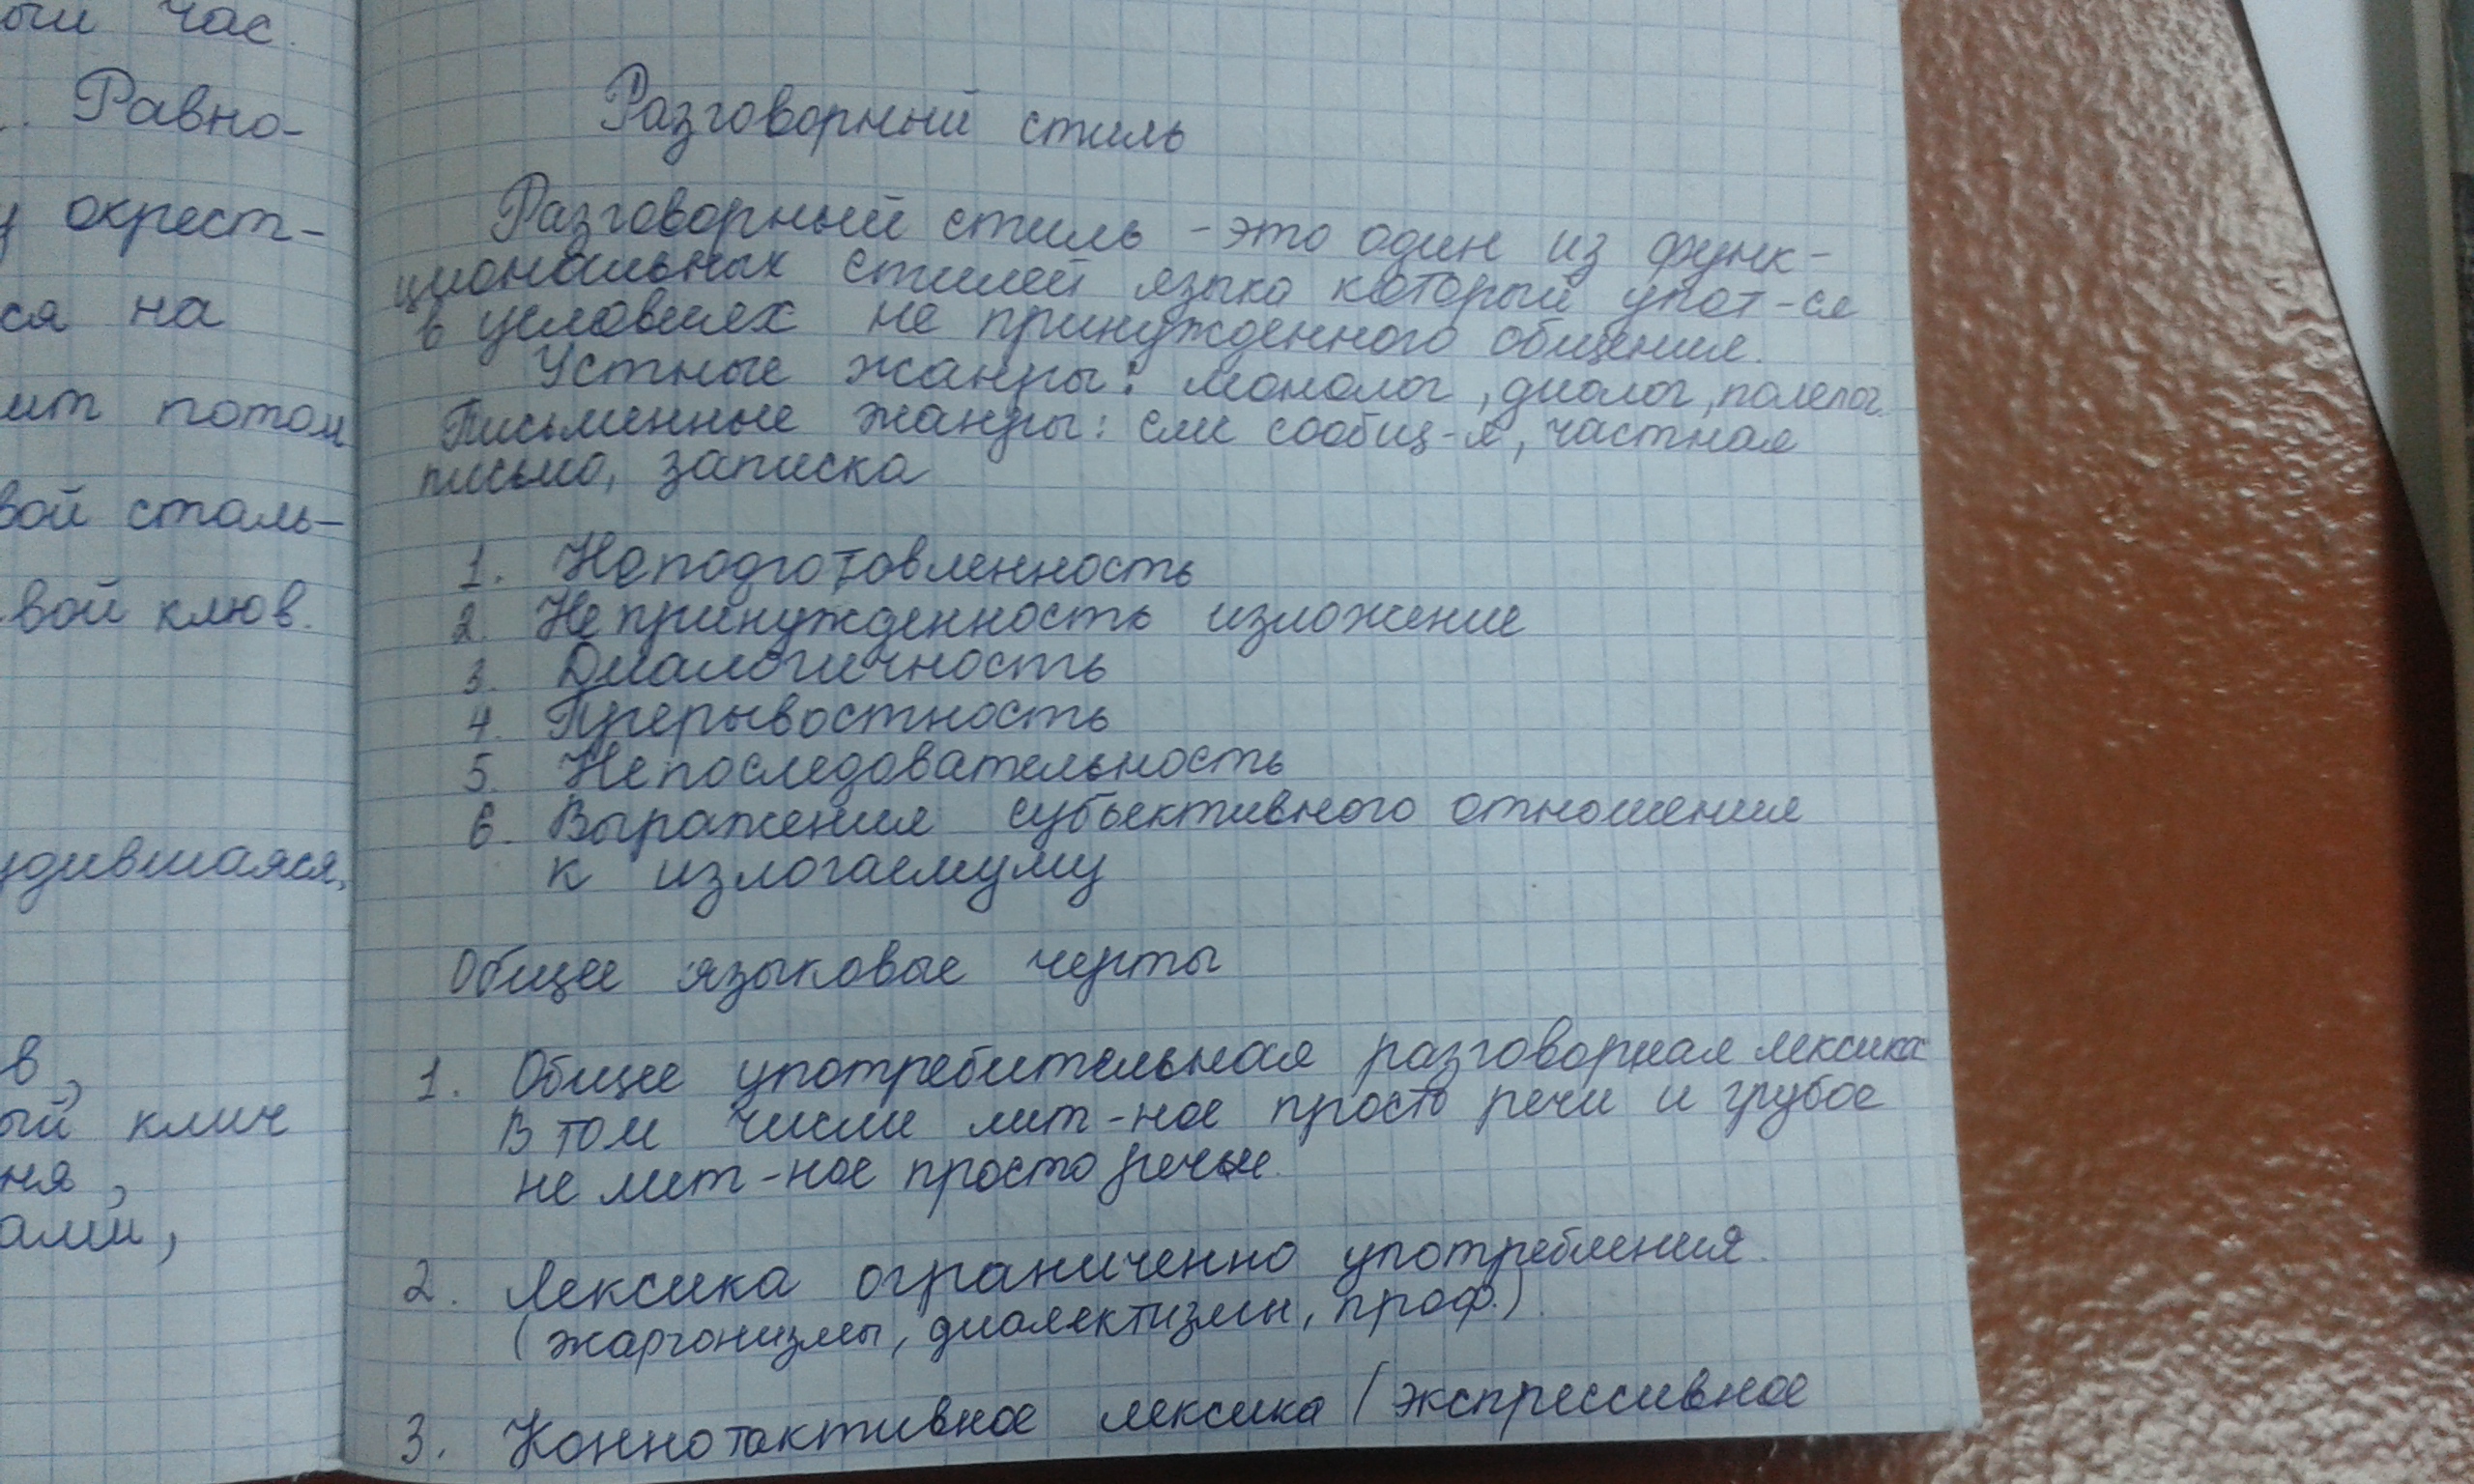 ый час.
Равно-
окрест-
ся на
ит потом
вой сталь-
вой клюв.
удившаяся,
в,
ый клич
ня,
ами,
Разговорный стиль
Разговорный стиль - это один из функ-
циональных стилей языка который упот-ся
в условиях не принужденного общения.
Устные жанры: монолог, диалог, полелог.
Письменные жанры: сми сообщ-я, частная
письмо, записка
1. Неподготовленность
2. Непринужденность изложение
3. Диалогичность
4. Прерывостность
5. Непоследовательность
6. Выражения субъективного отношения
к излогаемуму
Общее языковые черты
1. Общее употребительная разговорная лексика
В том числе лит-ное просто речи и грубое
не лит-ное просто речье.
2. Лексика ограниченно употребления.
(жаргонизмы, диалектизмы, проф.)
3. Коннотактивное лексика (экспрессивное